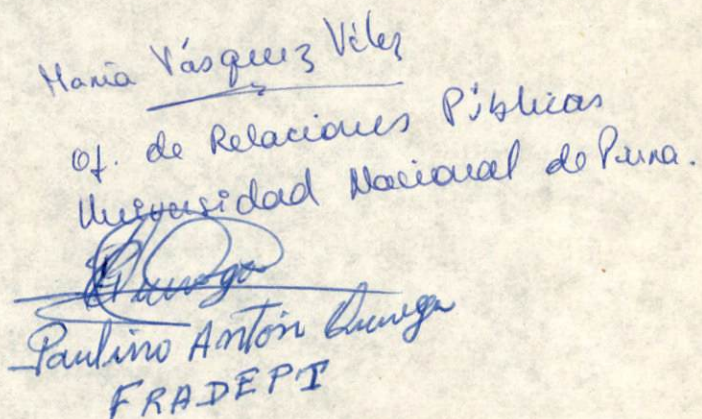 María Vásquez Vélez
Of. de Relaciones Públicas
Universidad Nacional de Piura.
Paulino Antón
FRADEPT